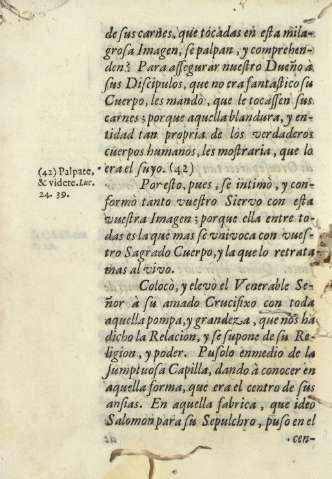 de sus carnes, que tocadas en esta mila-
grosa Imagen, se palpan, y comprehen-
den? Para assegurar nuestro Dueño à
sus Discipulos, que no era fantastico su
Cuerpo, les mandò, que le tocassen sus
carnes; porque aquella blandura, y en-
tidad tan propria de los verdaderos
cuerpos humanos, les mostraria, que lo
era el suyo. (42)
(42) Palpate,
& videte. Luc.
24. 39.
Por esto, pues, se intimò, y con-
formò tanto vuestro Siervo con esta
vuestra Imagen; porque ella entre to-
das es la que mas se vnivoca con vues-
tro Sagrado Cuerpo, y la que lo retrata
mas al vivo.
Colocò, y elevò el Venerable Se-
ñor à su amado Crucifixo con toda
aquella pompa, y grandeza, que nos ha
dicho la Relacion, y se supone de su Re-
ligion, y poder. Pusolo enmedio de la
sumptuosa Capilla, dando à conocer en
aquella forma, que era el centro de sus
ansias. En aquella fabrica, que ideò
Salomon para su Sepulchro, puso en el
cen-